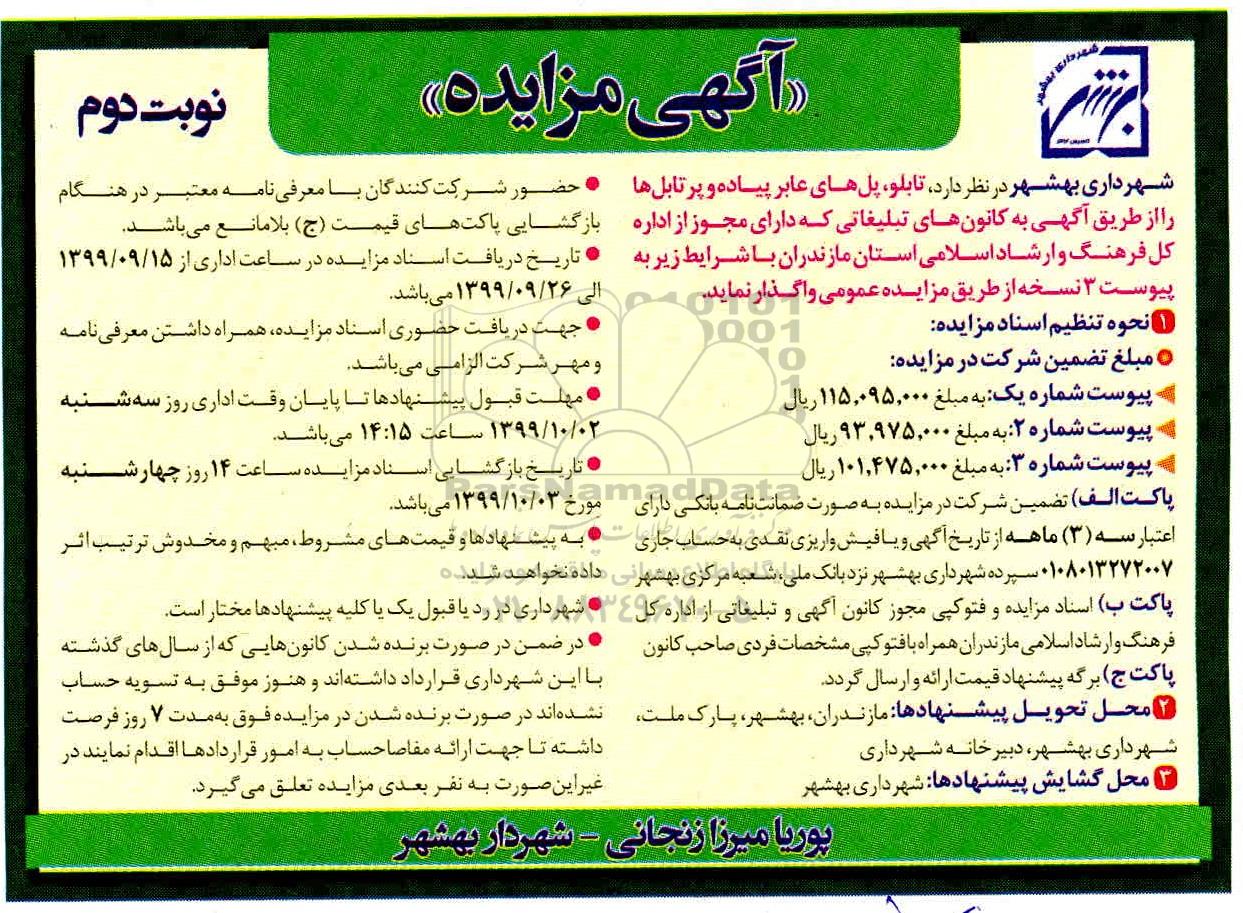 «آگهی مزایده»
نوبت دوم
شهرداری بهشهر
شهرداری بهشهر در نظر دارد، تابلو، پل‌های عابر پیاده و پر تابل‌ها
را از طریق آگهی به کانون‌های تبلیغاتی که دارای مجوز از اداره
کل فرهنگ و ارشاد اسلامی استان مازندران با شرایط زیر به
پیوست ۳ نسخه از طریق مزایده عمومی واگذار نماید.
۱ نحوه تنظیم اسناد مزایده:
مبلغ تضمین شرکت در مزایده:
پیوست شماره یک: به مبلغ ۱۱۵,۰۹۵,۰۰۰ ریال
پیوست شماره ۲: به مبلغ ۹۳,۹۷۵,۰۰۰ ریال
پیوست شماره ۳: به مبلغ ۱۰۱,۴۷۵,۰۰۰ ریال
پاکت الف) تضمین شرکت در مزایده به صورت ضمانت‌نامه بانکی دارای
اعتبار سه (۳) ماهه از تاریخ آگهی و یا فیش واریزی نقدی به حساب جاری
۰۱۰۸۰۱۳۲۷۲۰۰۷ سپرده شهرداری بهشهر نزد بانک ملی، شعبه مرکزی بهشهر
پاکت ب) اسناد مزایده و فتوکپی مجوز کانون آگهی و تبلیغاتی از اداره کل
فرهنگ و ارشاد اسلامی مازندران همراه با فتوکپی مشخصات فردی صاحب کانون
پاکت ج) برگه پیشنهاد قیمت ارائه و ارسال گردد.
۲ محل تحویل پیشنهادها: مازندران، بهشهر، پارک ملت،
شهرداری بهشهر، دبیرخانه شهرداری
۳ محل گشایش پیشنهادها: شهرداری بهشهر
● حضور شرکت‌کنندگان با معرفی‌نامه معتبر در هنگام
بازگشایی پاکت‌های قیمت (ج) بلامانع می‌باشد.
● تاریخ دریافت اسناد مزایده در ساعت اداری از ۱۳۹۹/۰۹/۱۵
الی ۱۳۹۹/۰۹/۲۶ می‌باشد.
● جهت دریافت حضوری اسناد مزایده، همراه داشتن معرفی‌نامه
و مهر شرکت الزامی می‌باشد.
● مهلت قبول پیشنهادها تا پایان وقت اداری روز سه‌شنبه
۱۳۹۹/۱۰/۰۲ ساعت ۱۴:۱۵ می‌باشد.
● تاریخ بازگشایی اسناد مزایده ساعت ۱۴ روز چهارشنبه
مورخ ۱۳۹۹/۱۰/۰۳ می‌باشد.
● به پیشنهادها و قیمت‌های مشروط، مبهم و مخدوش ترتیب اثر
داده نخواهد شد.
● شهرداری در رد یا قبول یک یا کلیه پیشنهادها مختار است.
● در ضمن در صورت برنده شدن کانون‌هایی که از سال‌های گذشته
با این شهرداری قرارداد داشته‌اند و هنوز موفق به تسویه حساب
نشده‌اند در صورت برنده شدن در مزایده فوق به‌مدت ۷ روز فرصت
داشته تا جهت ارائه مفاصاحساب به امور قراردادها اقدام نمایند در
غیراین‌صورت به نفر بعدی مزایده تعلق می‌گیرد.
پوریا میرزا زنجانی - شهردار بهشهر
ParsNamadData
۰۲۱-۸۸۳۴۹۶۷۰-۵